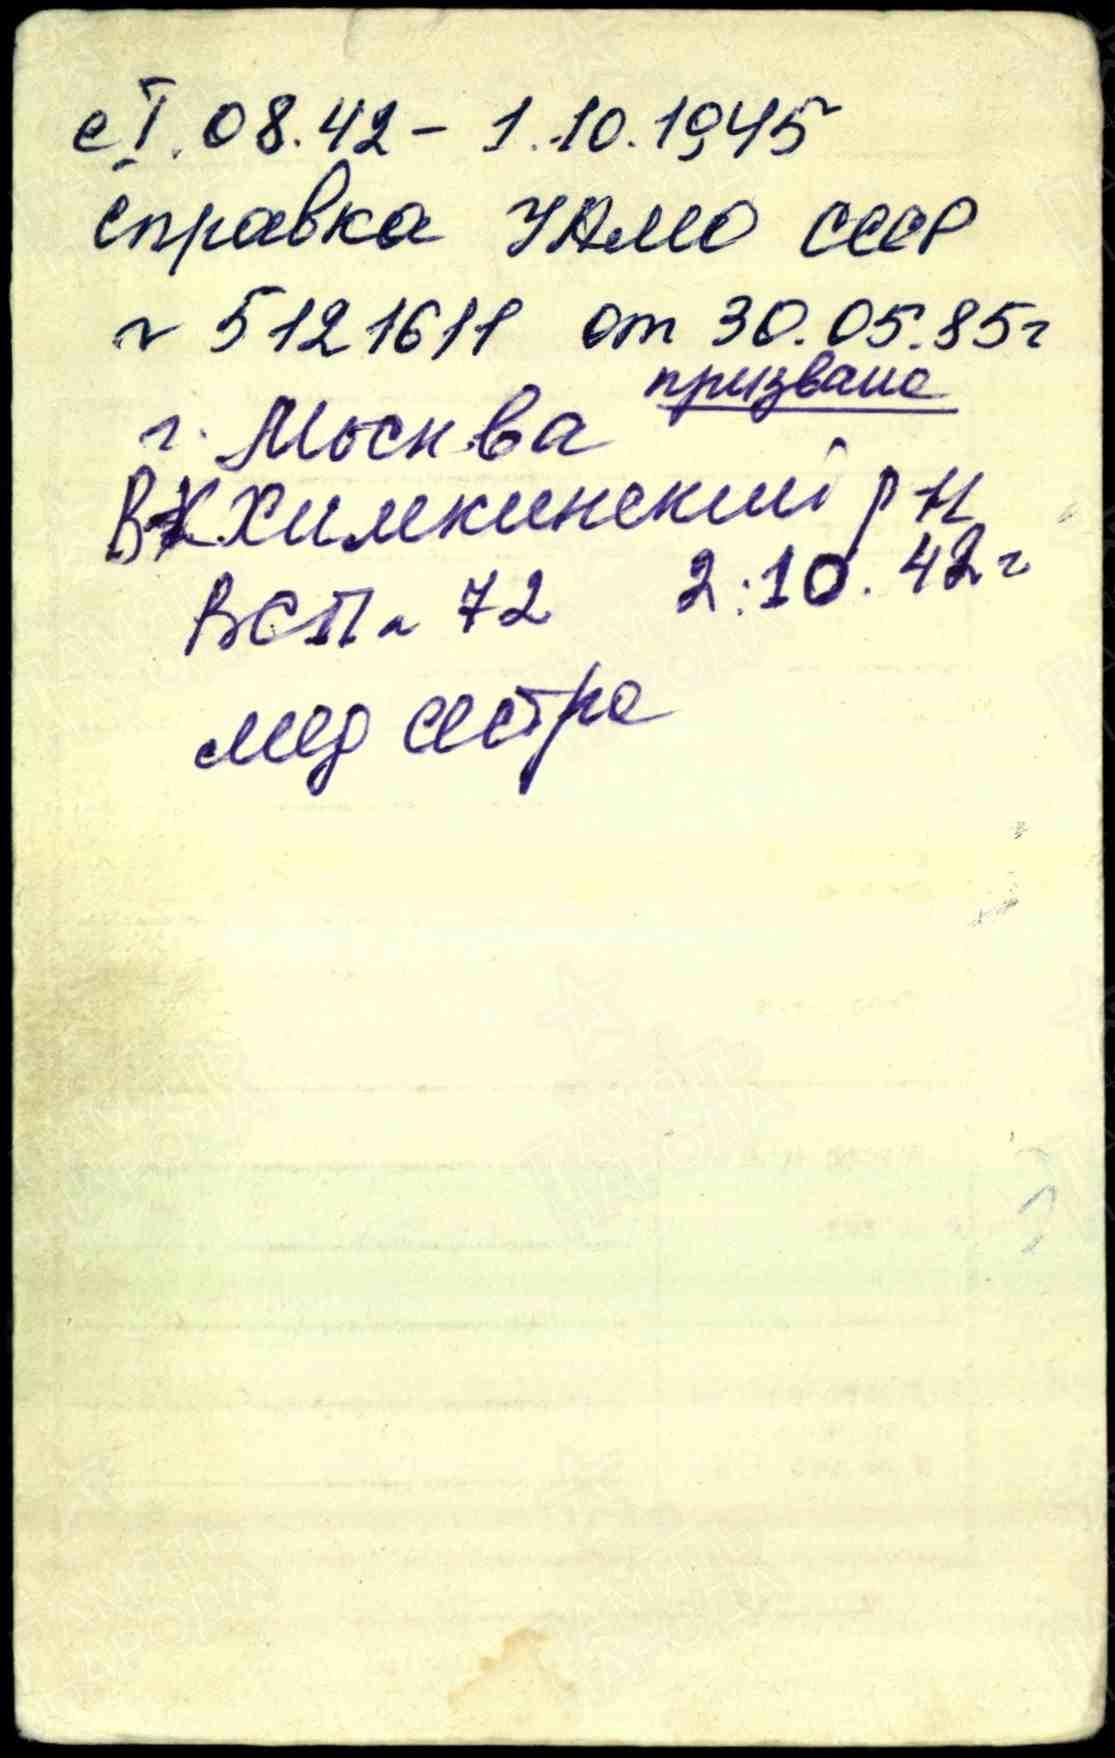 с I. 08.42 - 1.10.1945
справка УАМО СССР
N 5121611 от 30.05.85г
призвана
г. Москва
ВК Химкинский р-н
ВСП N 72 2.10.42г
мед сестра